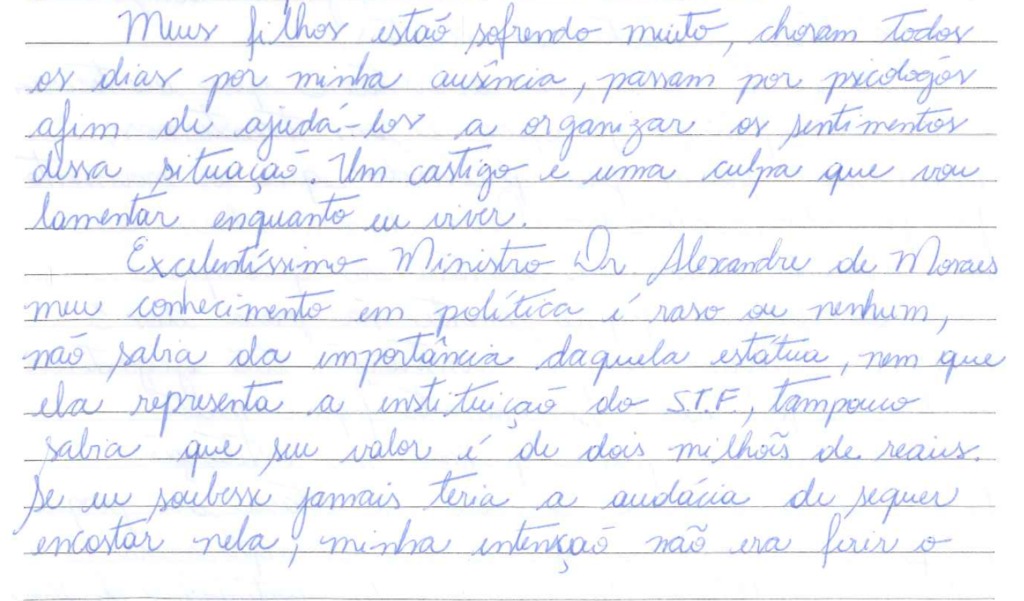 Meus filhos estaõ sofrendo muito, choram todos
os dias por minha ausência, passam por psicologós
afim de ajudá-los a organizar os sentimentos
dessa situação. Um castigo e uma culpa que vou
lamentar enquanto eu viver.
Excelentíssimo Ministro Dr Alexandre de Moraes
meu conhecimento em política é raso ou nenhum,
não sabia da importância daquela estátua, nem que
ela representa a instituiçaõ do S.T.F., tampouco
sabia que seu valor é de dois milhões de reais.
Se eu soubesse jamais teria a audácia de sequer
encostar nela, minha intençaõ não era ferir o